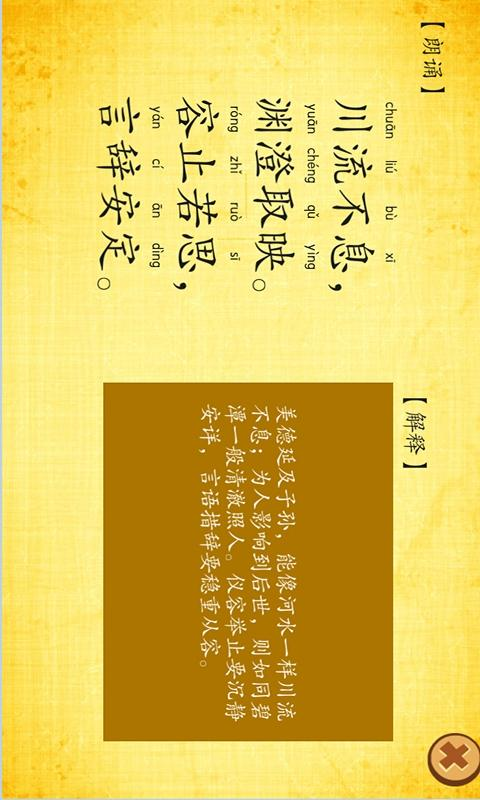 【朗诵】
chuān liú bù xī
川流不息，
yuān chéng qǔ yìng
渊澄取映。
róng zhǐ ruò sī
容止若思，
yán cí ān dìng
言辞安定。
【解释】
美德延及子孙，能像河水一样川流
不息；为人影响到后世，则如同碧
潭一般清澈照人。仪容举止要沉静
安详，言语措辞要稳重从容。